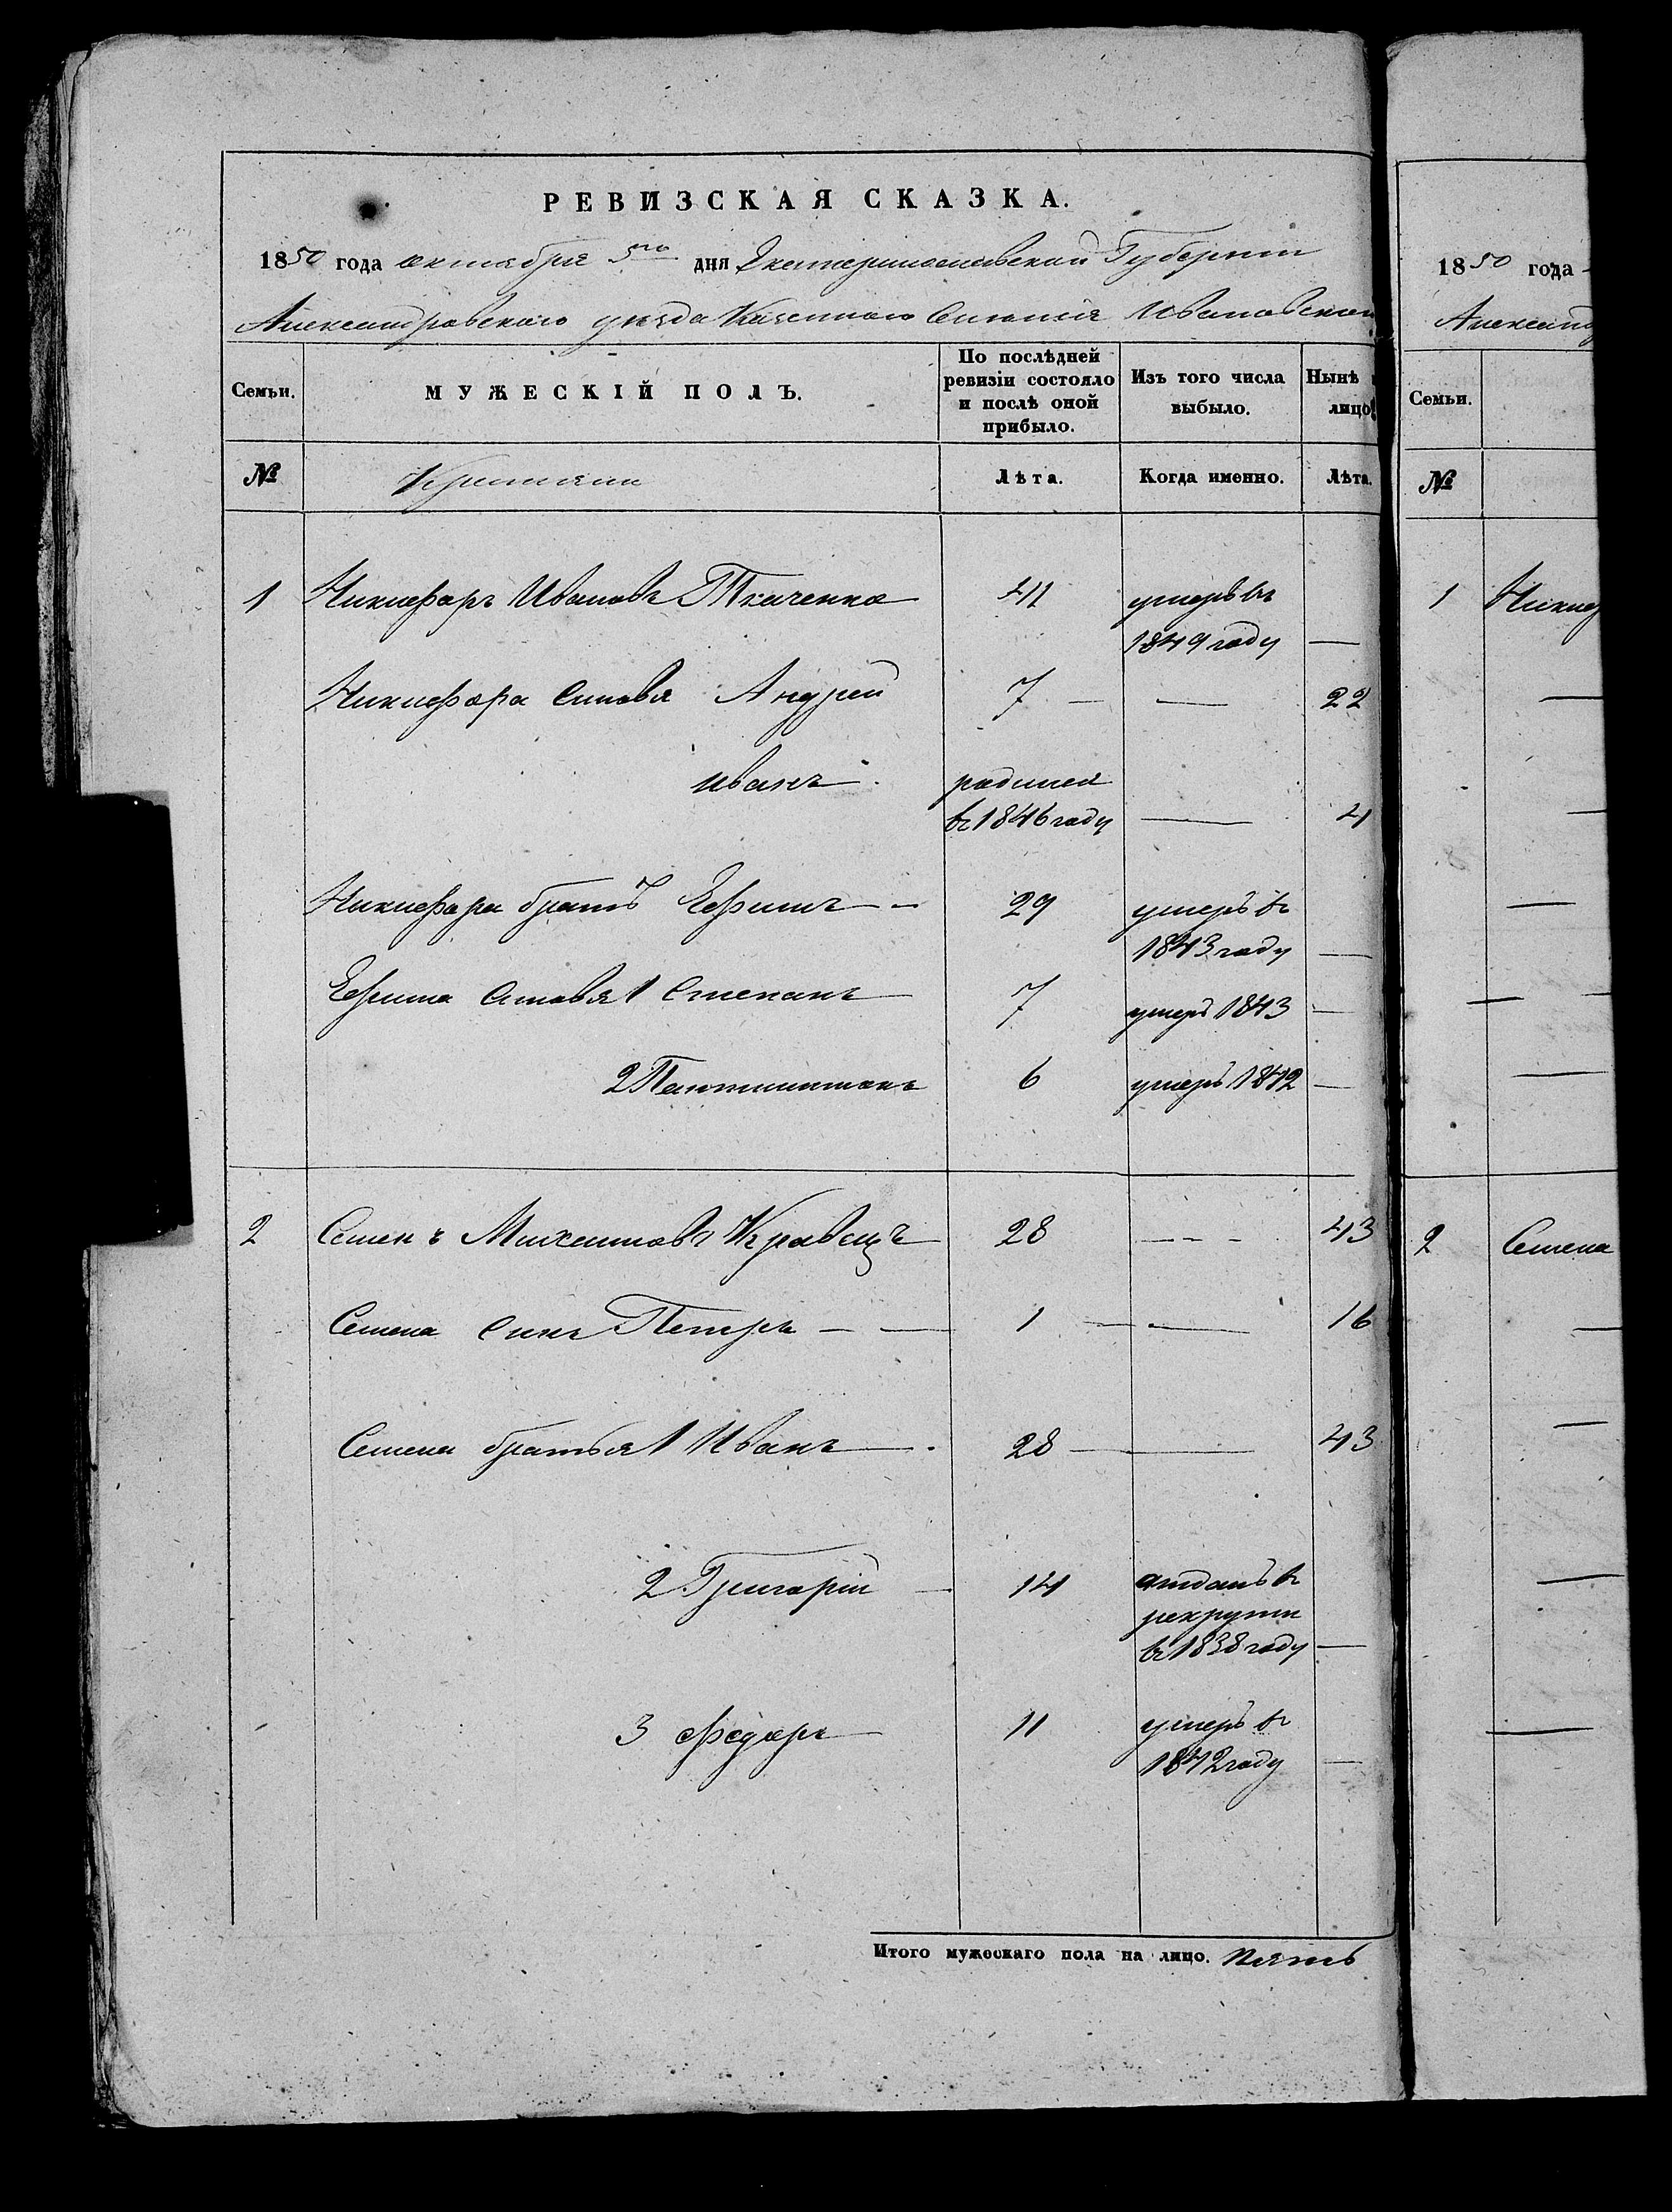 РЕВИЗСКАЯ СКАЗКА.
1850 года октября 5го дня Екатеринославской Губернии
Александровского уезда Казенного Селения Ивановского
Семьи. МУЖЕСКІЙ ПОЛЪ. По послѣдней ревизіи состояло и послѣ оной прибыло. Изъ того числа выбыло. Нынѣ лицо
№ Крестьяни Лѣта. Когда именно. Лѣта.
1 Никифоръ Ивановъ Ткаченко 41 умеръ въ
1849 году —
Никифора синовя Андрей 7 — — 22
Иванъ родился
въ 1846 году — 4
Никифора братъ Ефимъ — 29 умеръ въ
1843 году —
Ефима синовя 1 Степанъ — 7 умеръ 1843 —
2 Пантилимонъ 6 умеръ 1842 —
2 Семенъ Михайловъ Кравецъ 28 - - - 43
Семена синъ Петръ — — 1 — — 16
Семена братья 1 Иванъ — 28 — 43
2 Григорій — 14 отданъ в
рекрути
въ 1838 году —
3 Федоръ — 11 умеръ въ
1842 году —
Итого мужескаго пола на лицо. пять
1850 года
Александ
Семьи.
№
1 Никиф
2 Семена